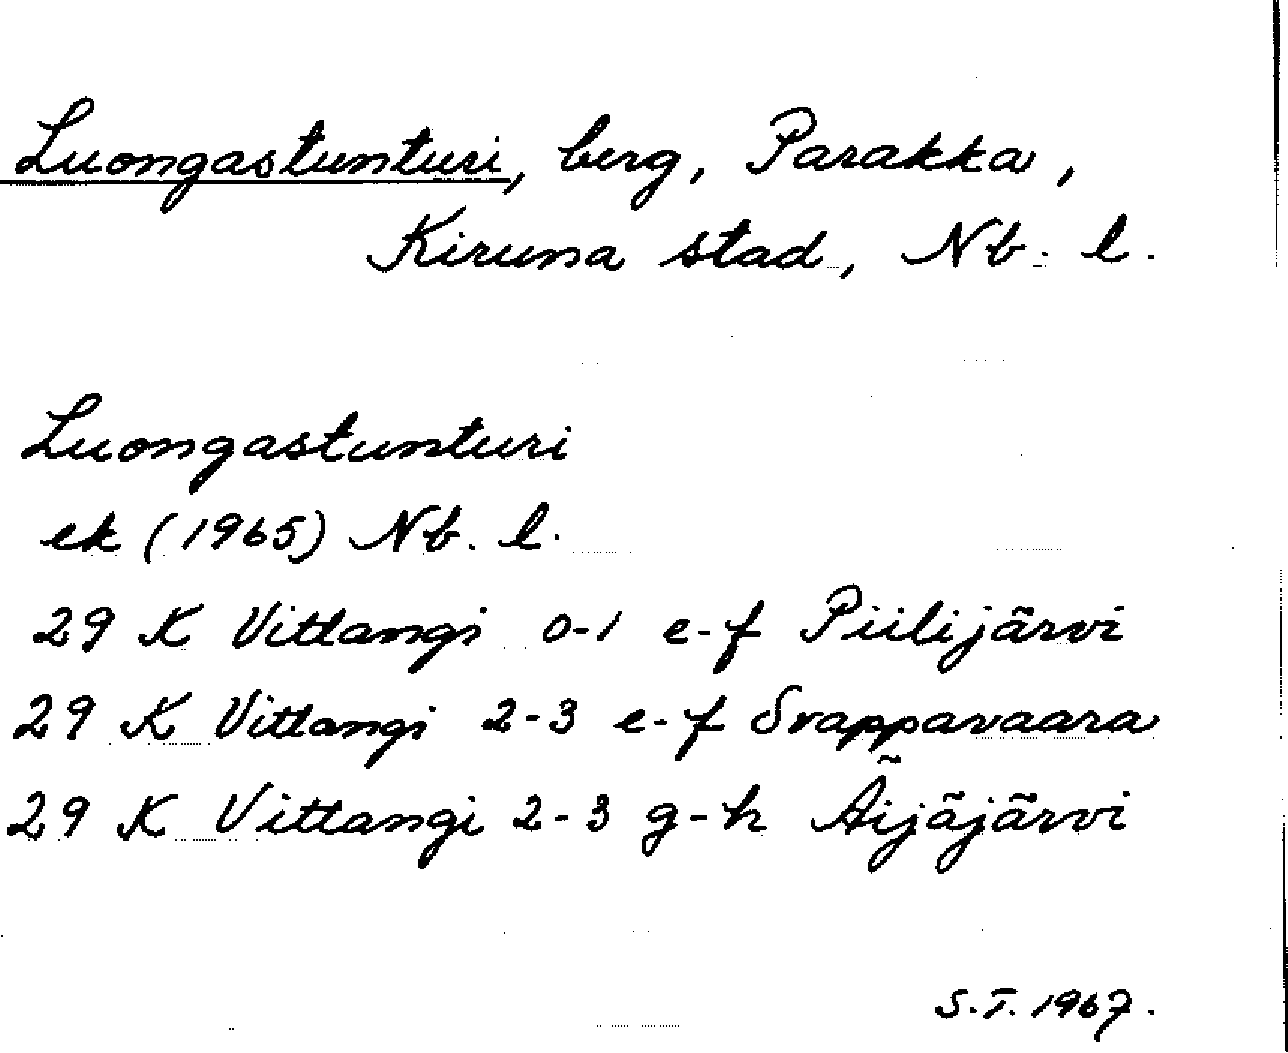 Luongastunturi, berg, Parakka,
Kiruna stad, Nb. l.
Luongastunturi
ek (1965) Nb. l.
29 K Vittangi 0-1 e-f Piilijärvi
29 K Vittangi 2-3 e-f Svappavaara
29 K Vittangi 2-3 g-h Äijäjärvi
S.T. 1967.